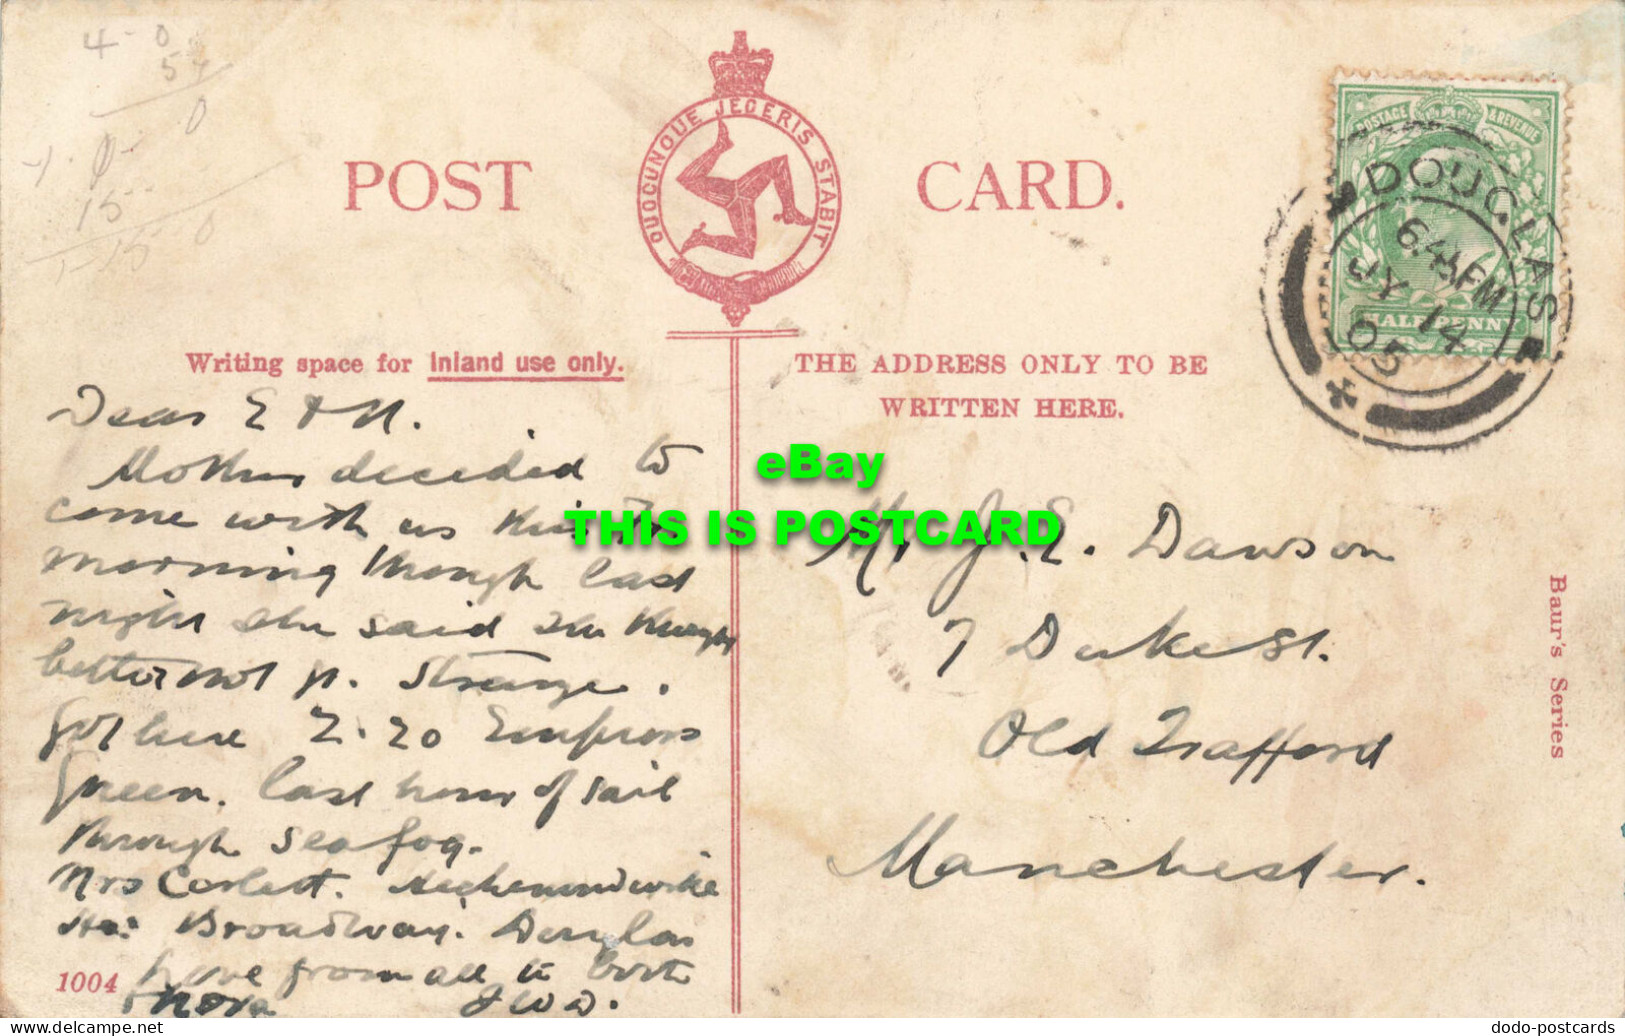 4-0
5
0
15
1-15-0
POST CARD.
QUOCUNQUE JECERIS STABIT
POSTAGE & REVENUE
HALFPENNY
DOUGLAS
JY 14
05
Writing space for Inland use only.
THE ADDRESS ONLY TO BE
WRITTEN HERE.
Dear E & N.
Mother decided to
come with us this
morning though last
night she said she
better not go. Strange.
Got here 2.20 Empress
Queen. last hour of sail
through sea fog.
Mrs Corlett.
Broadway. Douglas
love from all to both
Nora J W D.
1004
eBay
THIS IS POSTCARD
Mr J. E. Dawson
7 Duke St.
Old Trafford
Manchester.
Baur's Series
dodo-postcards